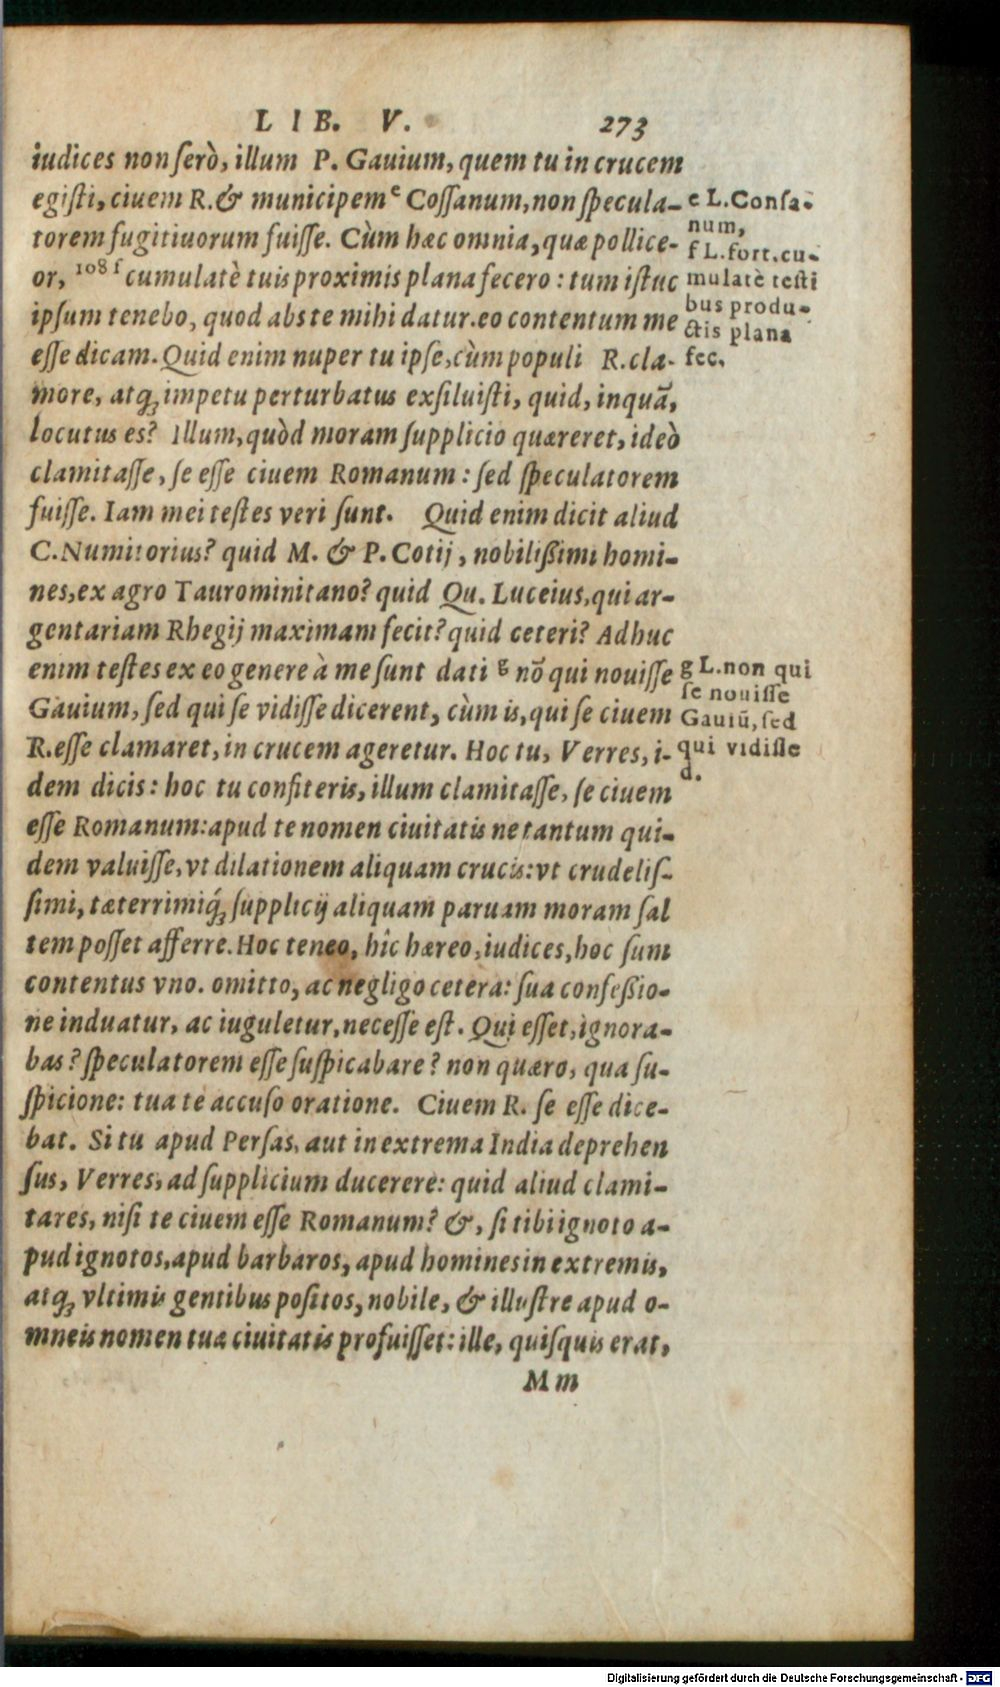 LIB. V. 273
iudices non serò, illum P. Gauium, quem tu in crucem
egisti, ciuem R. & municipem e Cossanum, non specula-
torem fugitiuorum fuisse. Cùm hæc omnia, quæ pollice-
or, 108 f cumulatè tuis proximis plana fecero: tum istuc
ipsum tenebo, quod abs te mihi datur. eo contentum me
esse dicam. Quid enim nuper tu ipse, cùm populi R. cla-
more, atq; impetu perturbatus exsiluisti, quid, inquã,
locutus es? Illum, quòd moram supplicio quæreret, ideò
clamitasse, se esse ciuem Romanum: sed speculatorem
fuisse. Iam mei testes veri sunt. Quid enim dicit aliud
C. Numitorius? quid M. & P. Cotij, nobilißimi homi-
nes, ex agro Taurominitano? quid Qu. Luceius, qui ar-
gentariam Rhegij maximam fecit? quid ceteri? Adhuc
enim testes ex eo genere à me sunt dati g nõ qui nouisse
Gauium, sed qui se vidisse dicerent, cùm is, qui se ciuem
R. esse clamaret, in crucem ageretur. Hoc tu, Verres, i-
dem dicis: hoc tu confiteris, illum clamitasse, se ciuem
esse Romanum: apud te nomen ciuitatis ne tantum qui-
dem valuisse, vt dilationem aliquam crucis: vt crudelis-
simi, tæterrimiq́; supplicij aliquam paruam moram sal
tem posset afferre. Hoc teneo, hîc hæreo, iudices, hoc sum
contentus vno. omitto, ac negligo cetera: sua confeßio-
ne induatur, ac iuguletur, necesse est. Qui esset, ignora-
bas? speculatorem esse suspicabare? non quæro, qua su-
spicione: tua te accuso oratione. Ciuem R. se esse dice-
bat. Si tu apud Persas, aut in extrema India deprehen
sus, Verres, ad supplicium ducerere: quid aliud clami-
tares, nisi te ciuem esse Romanum? &, si tibi ignoto a-
pud ignotos, apud barbaros, apud homines in extremis,
atq; vltimis gentibus positos, nobile, & illustre apud o-
mneis nomen tuæ ciuitatis profuisset: ille, quisquis erat,
Mm
e L. Consa-
num,
f L. fort. cu-
mulatè testi
bus produ-
ctis plana
fec.
g L. non qui
se nouisse
Gauiũ, sed
qui vidisse
d.
Digitalisierung gefördert durch die Deutsche Forschungsgemeinschaft - DFG